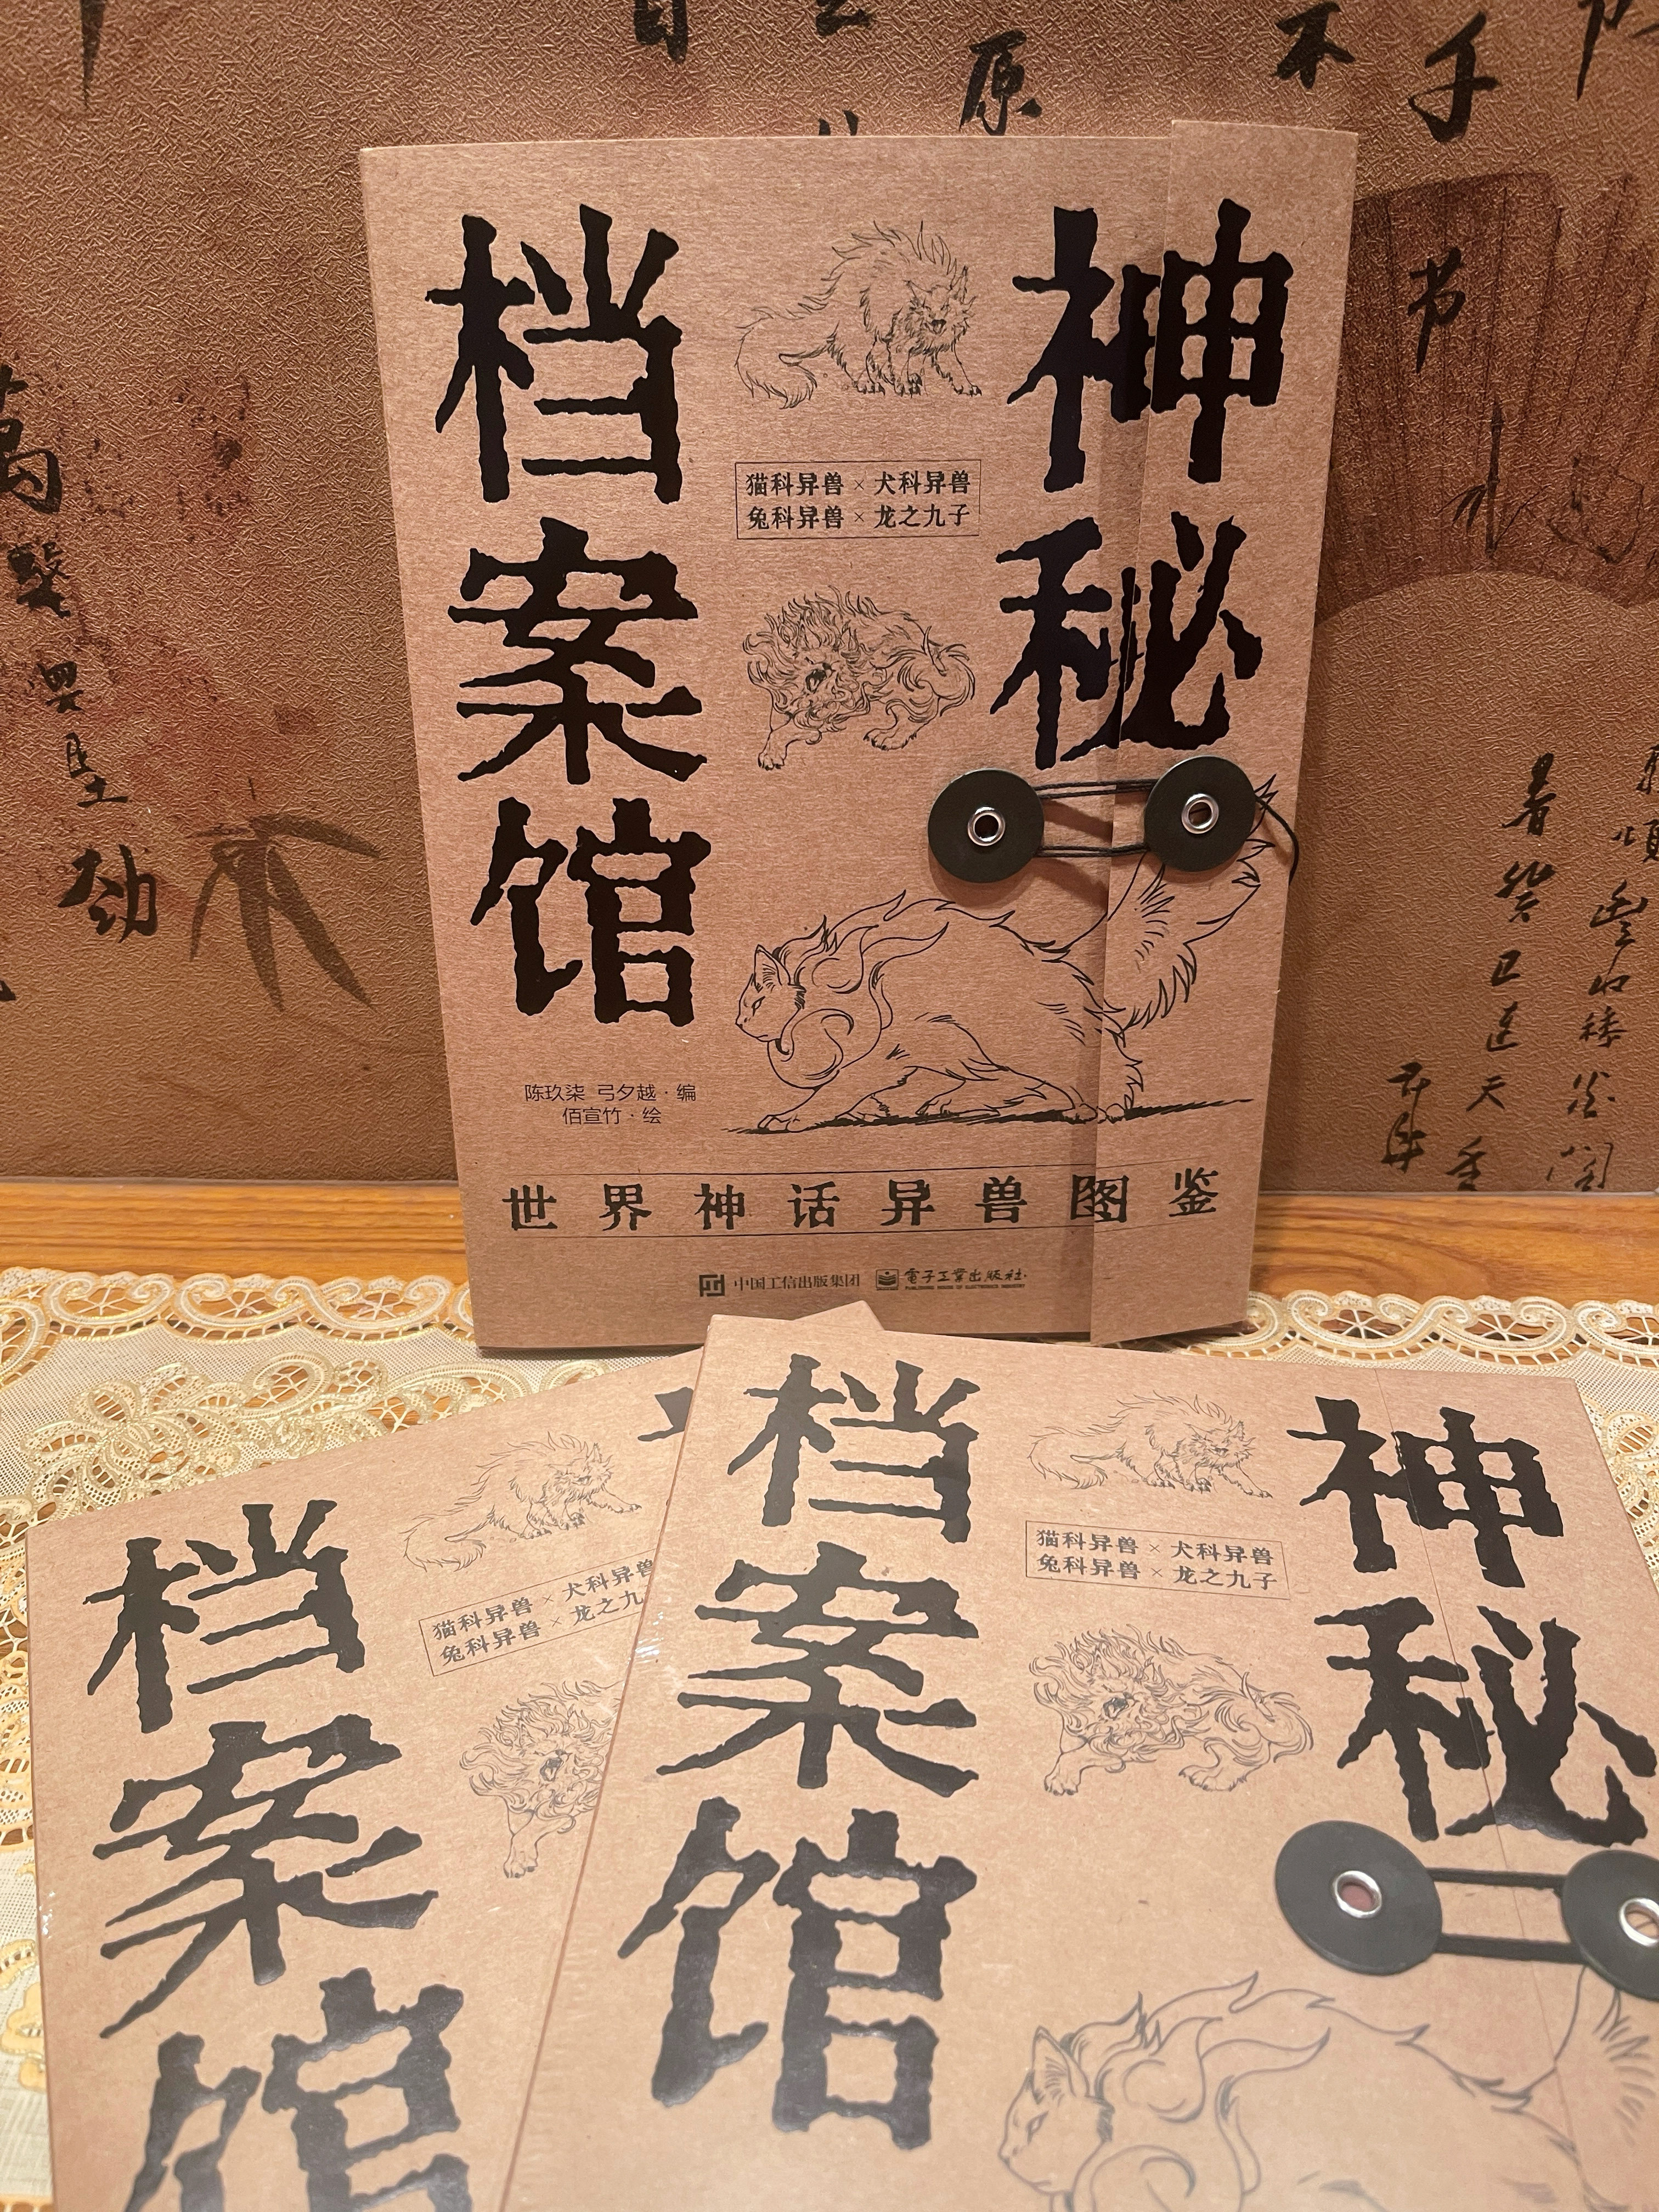 神秘
档案馆
猫科异兽×犬科异兽
兔科异兽×龙之九子
陈玖柒 弓夕越·编
佰宣竹·绘
世界神话异兽图鉴
中国工信出版集团
電子工業出版社
PUBLISHING HOUSE OF ELECTRONICS INDUSTRY
神秘
档案馆
猫科异兽×犬科异兽
兔科异兽×龙之九子
档案馆
猫科异兽×犬科异兽
兔科异兽×龙之九
原
不
千
节
劲
春
癸
巳
天